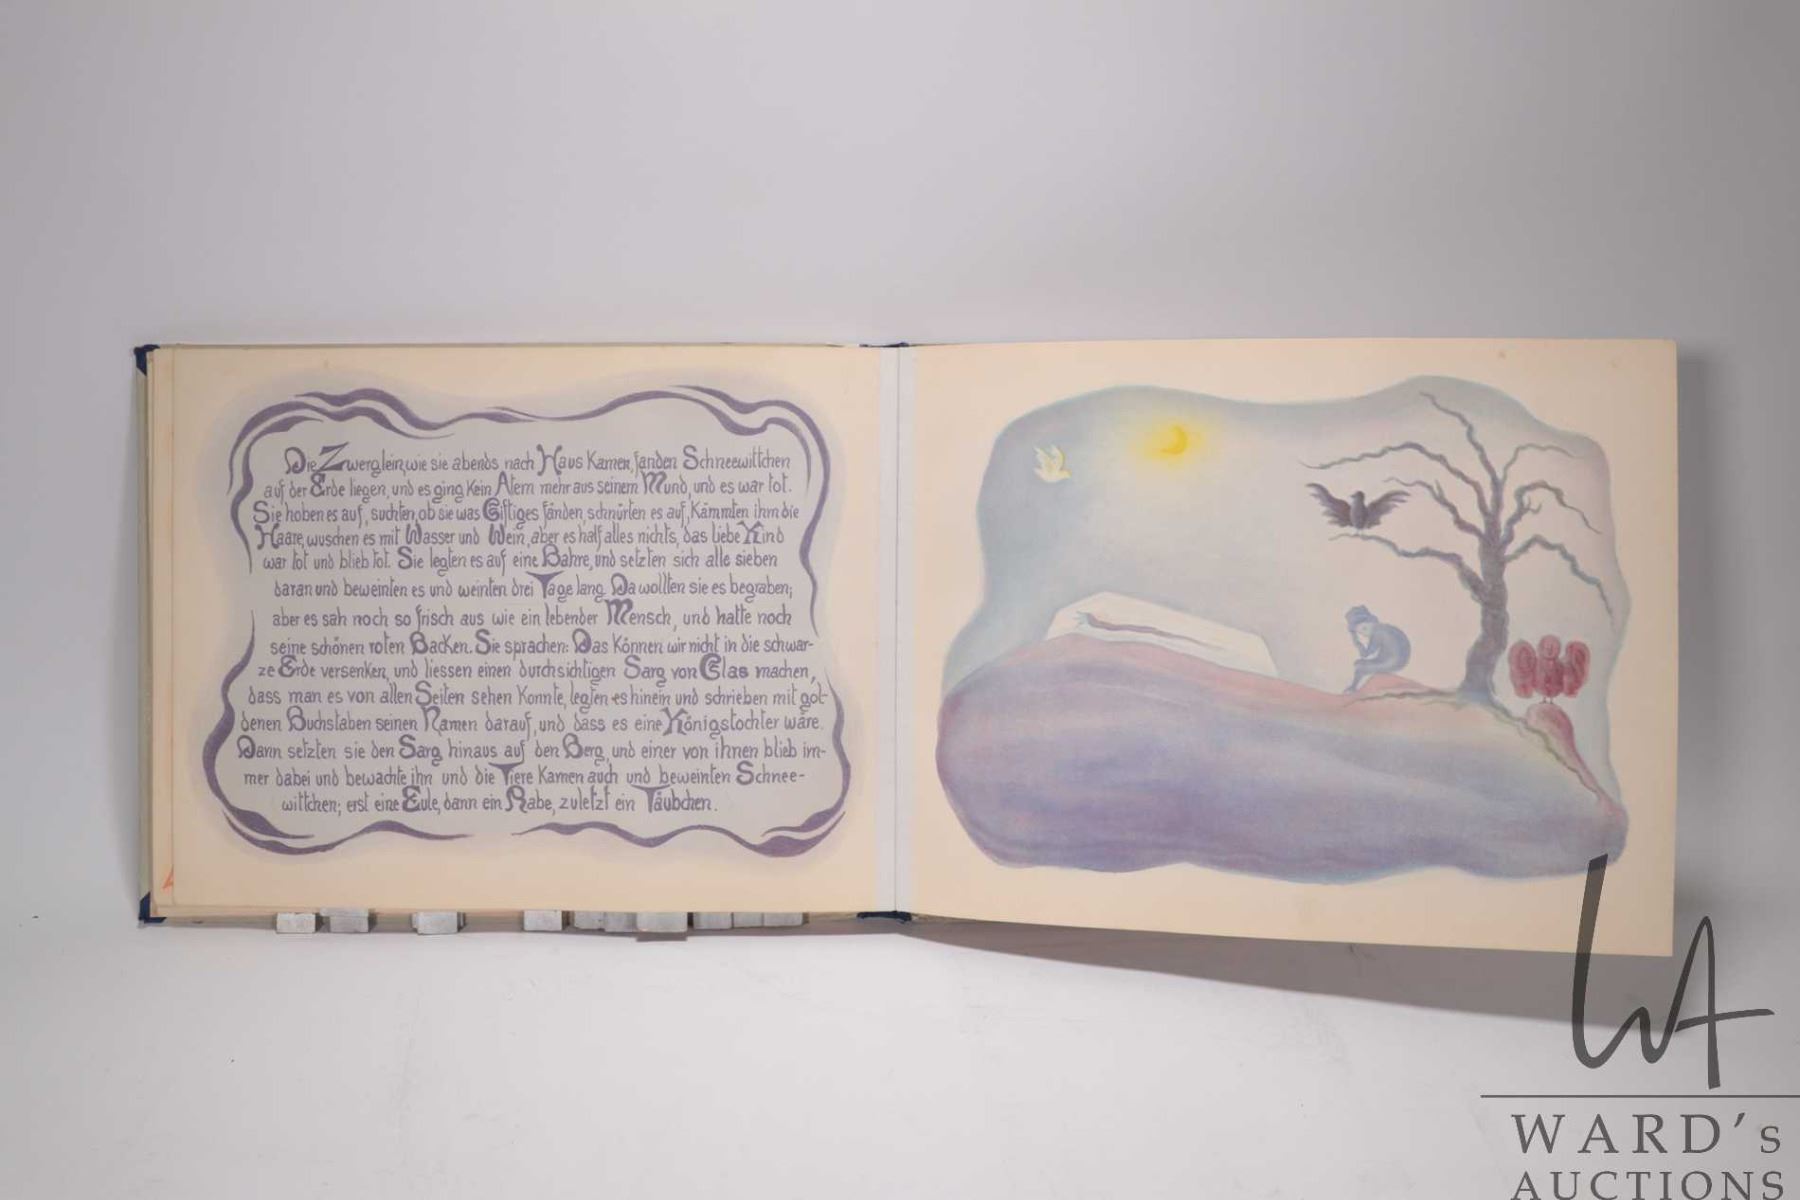 Die Zwerglein, wie sie abends nach Haus kamen, fanden Schneewittchen
auf der Erde liegen, und es ging kein Atem mehr aus seinem Mund, und es war tot.
Sie hoben es auf, suchten, ob sie was Giftiges fänden, schnürten es auf, kämmten ihm die
Haare, wuschen es mit Wasser und Wein, aber es half alles nichts, das liebe Kind
war tot und blieb tot. Sie legten es auf eine Bahre, und setzten sich alle sieben
daran und beweinten es und weinten drei Tage lang. Da wollten sie es begraben;
aber es sah noch so frisch aus wie ein lebender Mensch, und hatte noch
seine schönen roten Backen. Sie sprachen: Das können wir nicht in die schwar-
ze Erde versenken, und liessen einen durchsichtigen Sarg von Glas machen,
dass man es von allen Seiten sehen konnte, legten es hinein und schrieben mit gol-
denen Buchstaben seinen Namen darauf, und dass es eine Königstochter wäre.
Dann setzten sie den Sarg hinaus auf den Berg, und einer von ihnen blieb im-
mer dabei und bewachte ihn und die Tiere kamen auch und beweinten Schnee-
wittchen; erst eine Eule, dann ein Rabe, zuletzt ein Täubchen.
WA
WARD's
AUCTIONS